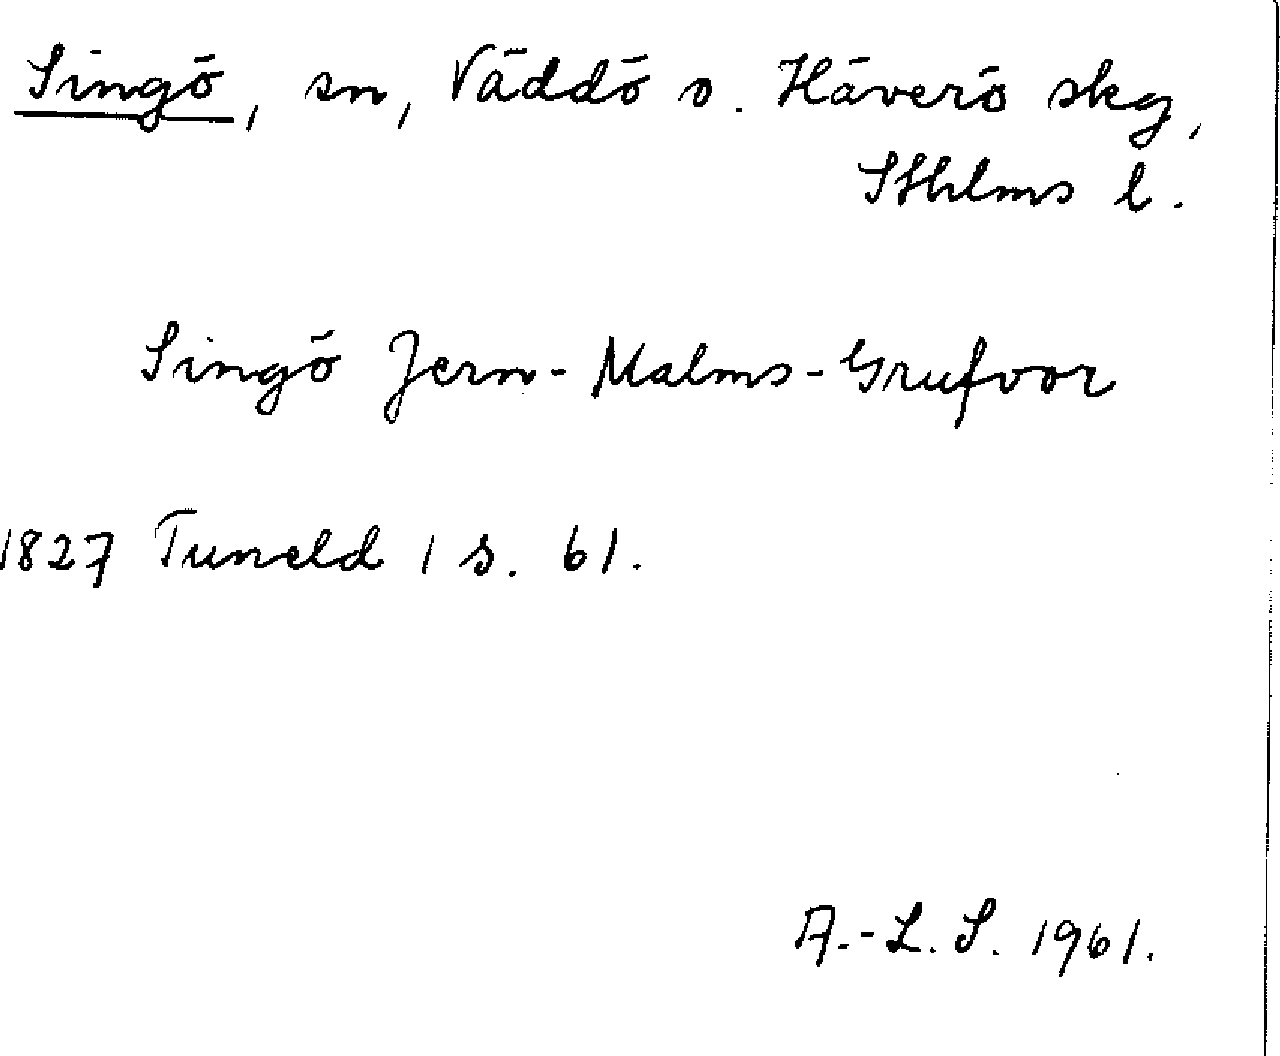 Singö, sn, Väddö o. Häverö skg,
Sthlms l.
Singö Jern-Malms-Grufvor
1827 Tuneld 1 s. 61.
A.-L. S. 1961.